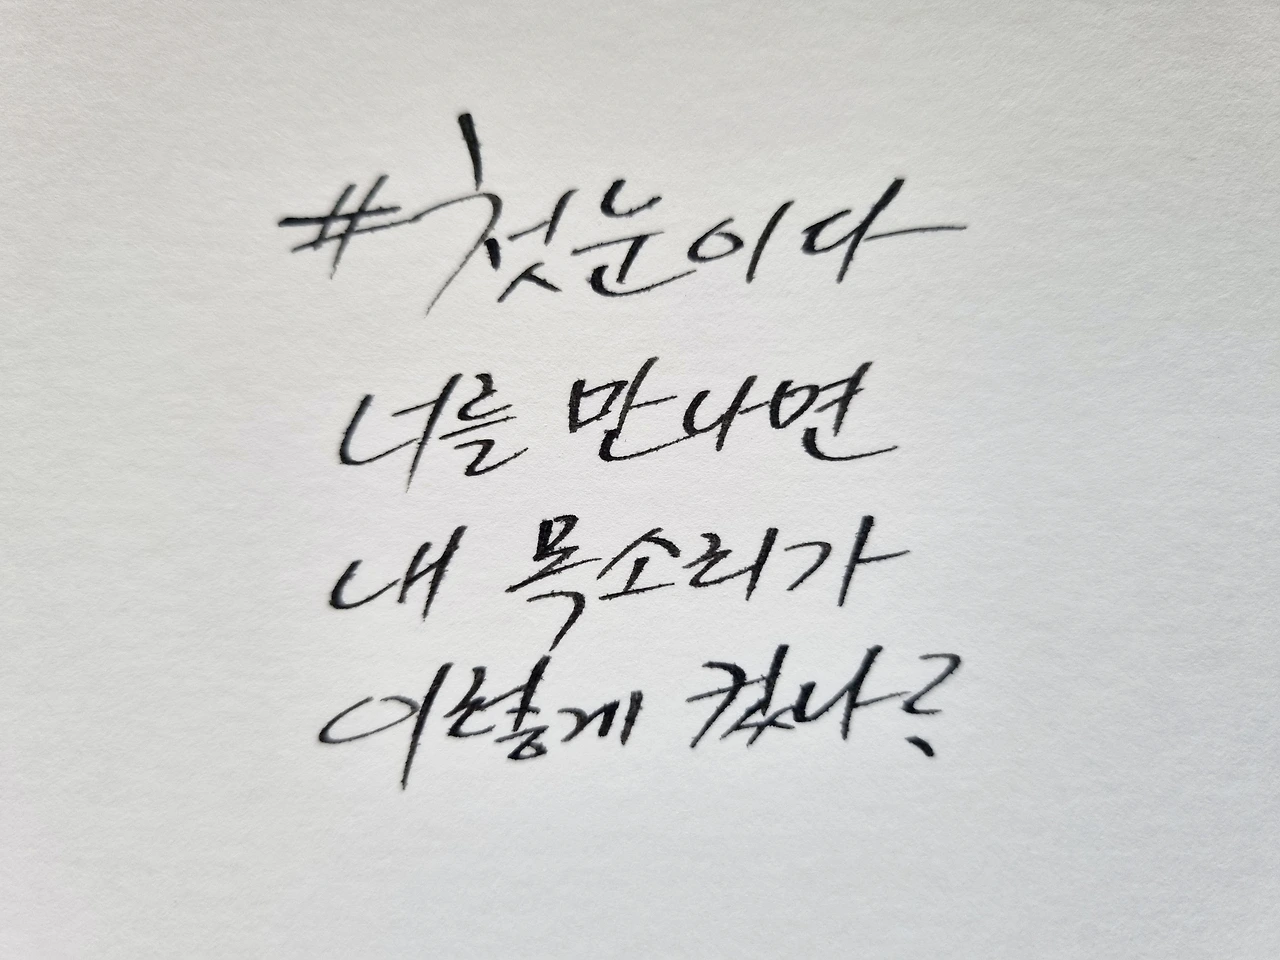 #첫눈이다
너를 만나면
내 목소리가
이렇게 컸나?